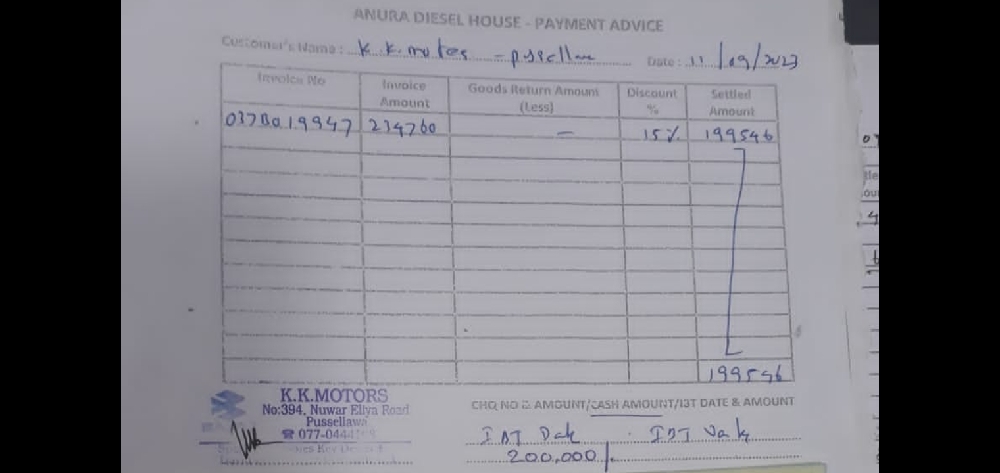 ANURA DIESEL HOUSE - PAYMENT ADVICE
Customer's Name : K.K. motors - pussellawa Date : 11/09/2023
Invoice No Invoice Amount Goods Return Amount (Less) Discount % Settled Amount
037Ba19947 234760 — 15% 199546
199546
K.K.MOTORS
No:394, Nuwar Eliya Road
Pussellawa
☎ 077-0444
CHQ NO & AMOUNT/CASH AMOUNT/IBT DATE & AMOUNT
200,000/-